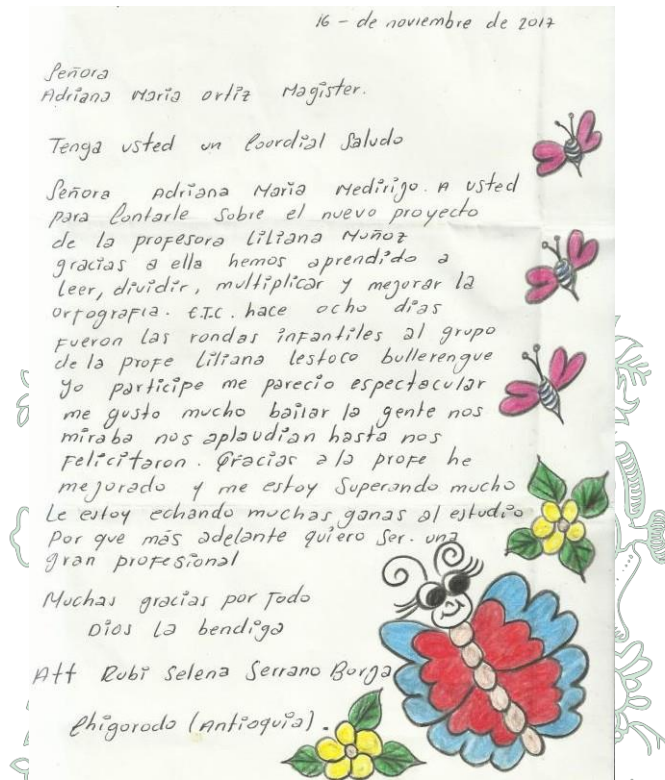 16 - de noviembre de 2017
Señora
Adriana Maria ortiz Magister.
Tenga usted un Coordial Saludo
Señora Adriana Maria Medirijo. A usted
para Contarle sobre el nuevo proyecto
de la profesora Liliana Muñoz
gracias a ella hemos aprendido a
leer, dividir, multiplicar y mejorar la
ortografia. E.T.C. hace ocho dias
fueron las rondas infantiles al grupo
de la profe Liliana lestoco bullerengue
yo participe me parecio espectacular
me gusto mucho bailar la gente nos
miraba nos aplaudian hasta nos
Felicitaron. Gracias a la profe he
mejorado y me estoy Superando mucho
Le estoy echando muchas ganas al estudio
Por que más adelante quiero ser. una
gran profesional
Muchas gracias por Todo
Dios La bendiga
Att Rubi Selena Serrano Borja
Chigorodo (Antioquia).